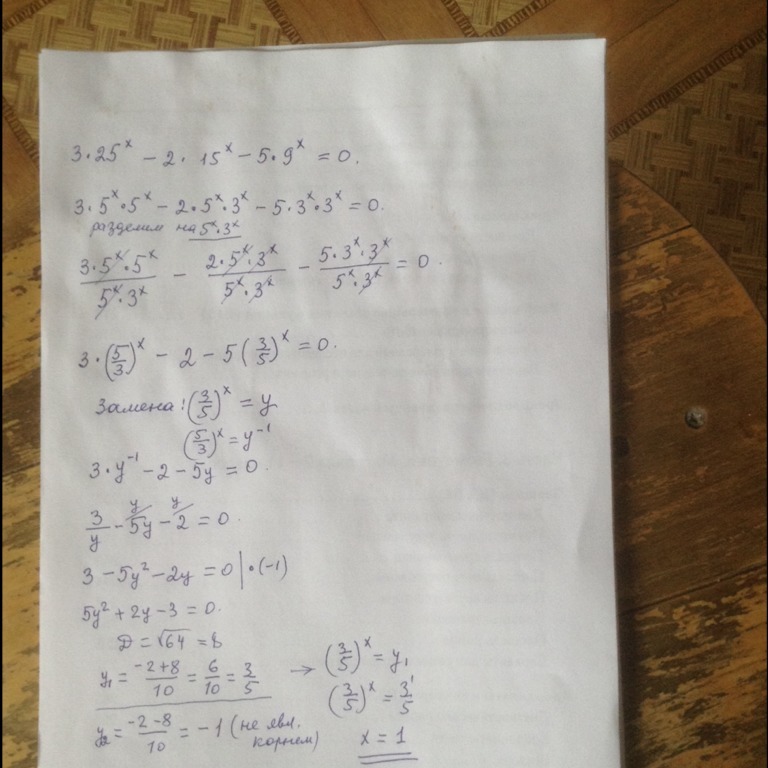 3·25ˣ − 2·15ˣ − 5·9ˣ = 0.
3·5ˣ·5ˣ − 2·5ˣ·3ˣ − 5·3ˣ·3ˣ = 0.
разделим на 5ˣ·3ˣ
(3·5ˣ·5ˣ)/(5ˣ·3ˣ) − (2·5ˣ·3ˣ)/(5ˣ·3ˣ) − (5·3ˣ·3ˣ)/(5ˣ·3ˣ) = 0.
3·(5/3)ˣ − 2 − 5(3/5)ˣ = 0.
Замена: (3/5)ˣ = y
(5/3)ˣ = y⁻¹
3·y⁻¹ − 2 − 5y = 0.
3/y − 5y − 2 = 0.
3 − 5y² − 2y = 0 | ·(-1)
5y² + 2y − 3 = 0.
D = √64 = 8
y₁ = (−2+8)/10 = 6/10 = 3/5 → (3/5)ˣ = y₁
(3/5)ˣ = 3/5¹
y₂ = (−2−8)/10 = −1 (не явл. корнем)
x = 1